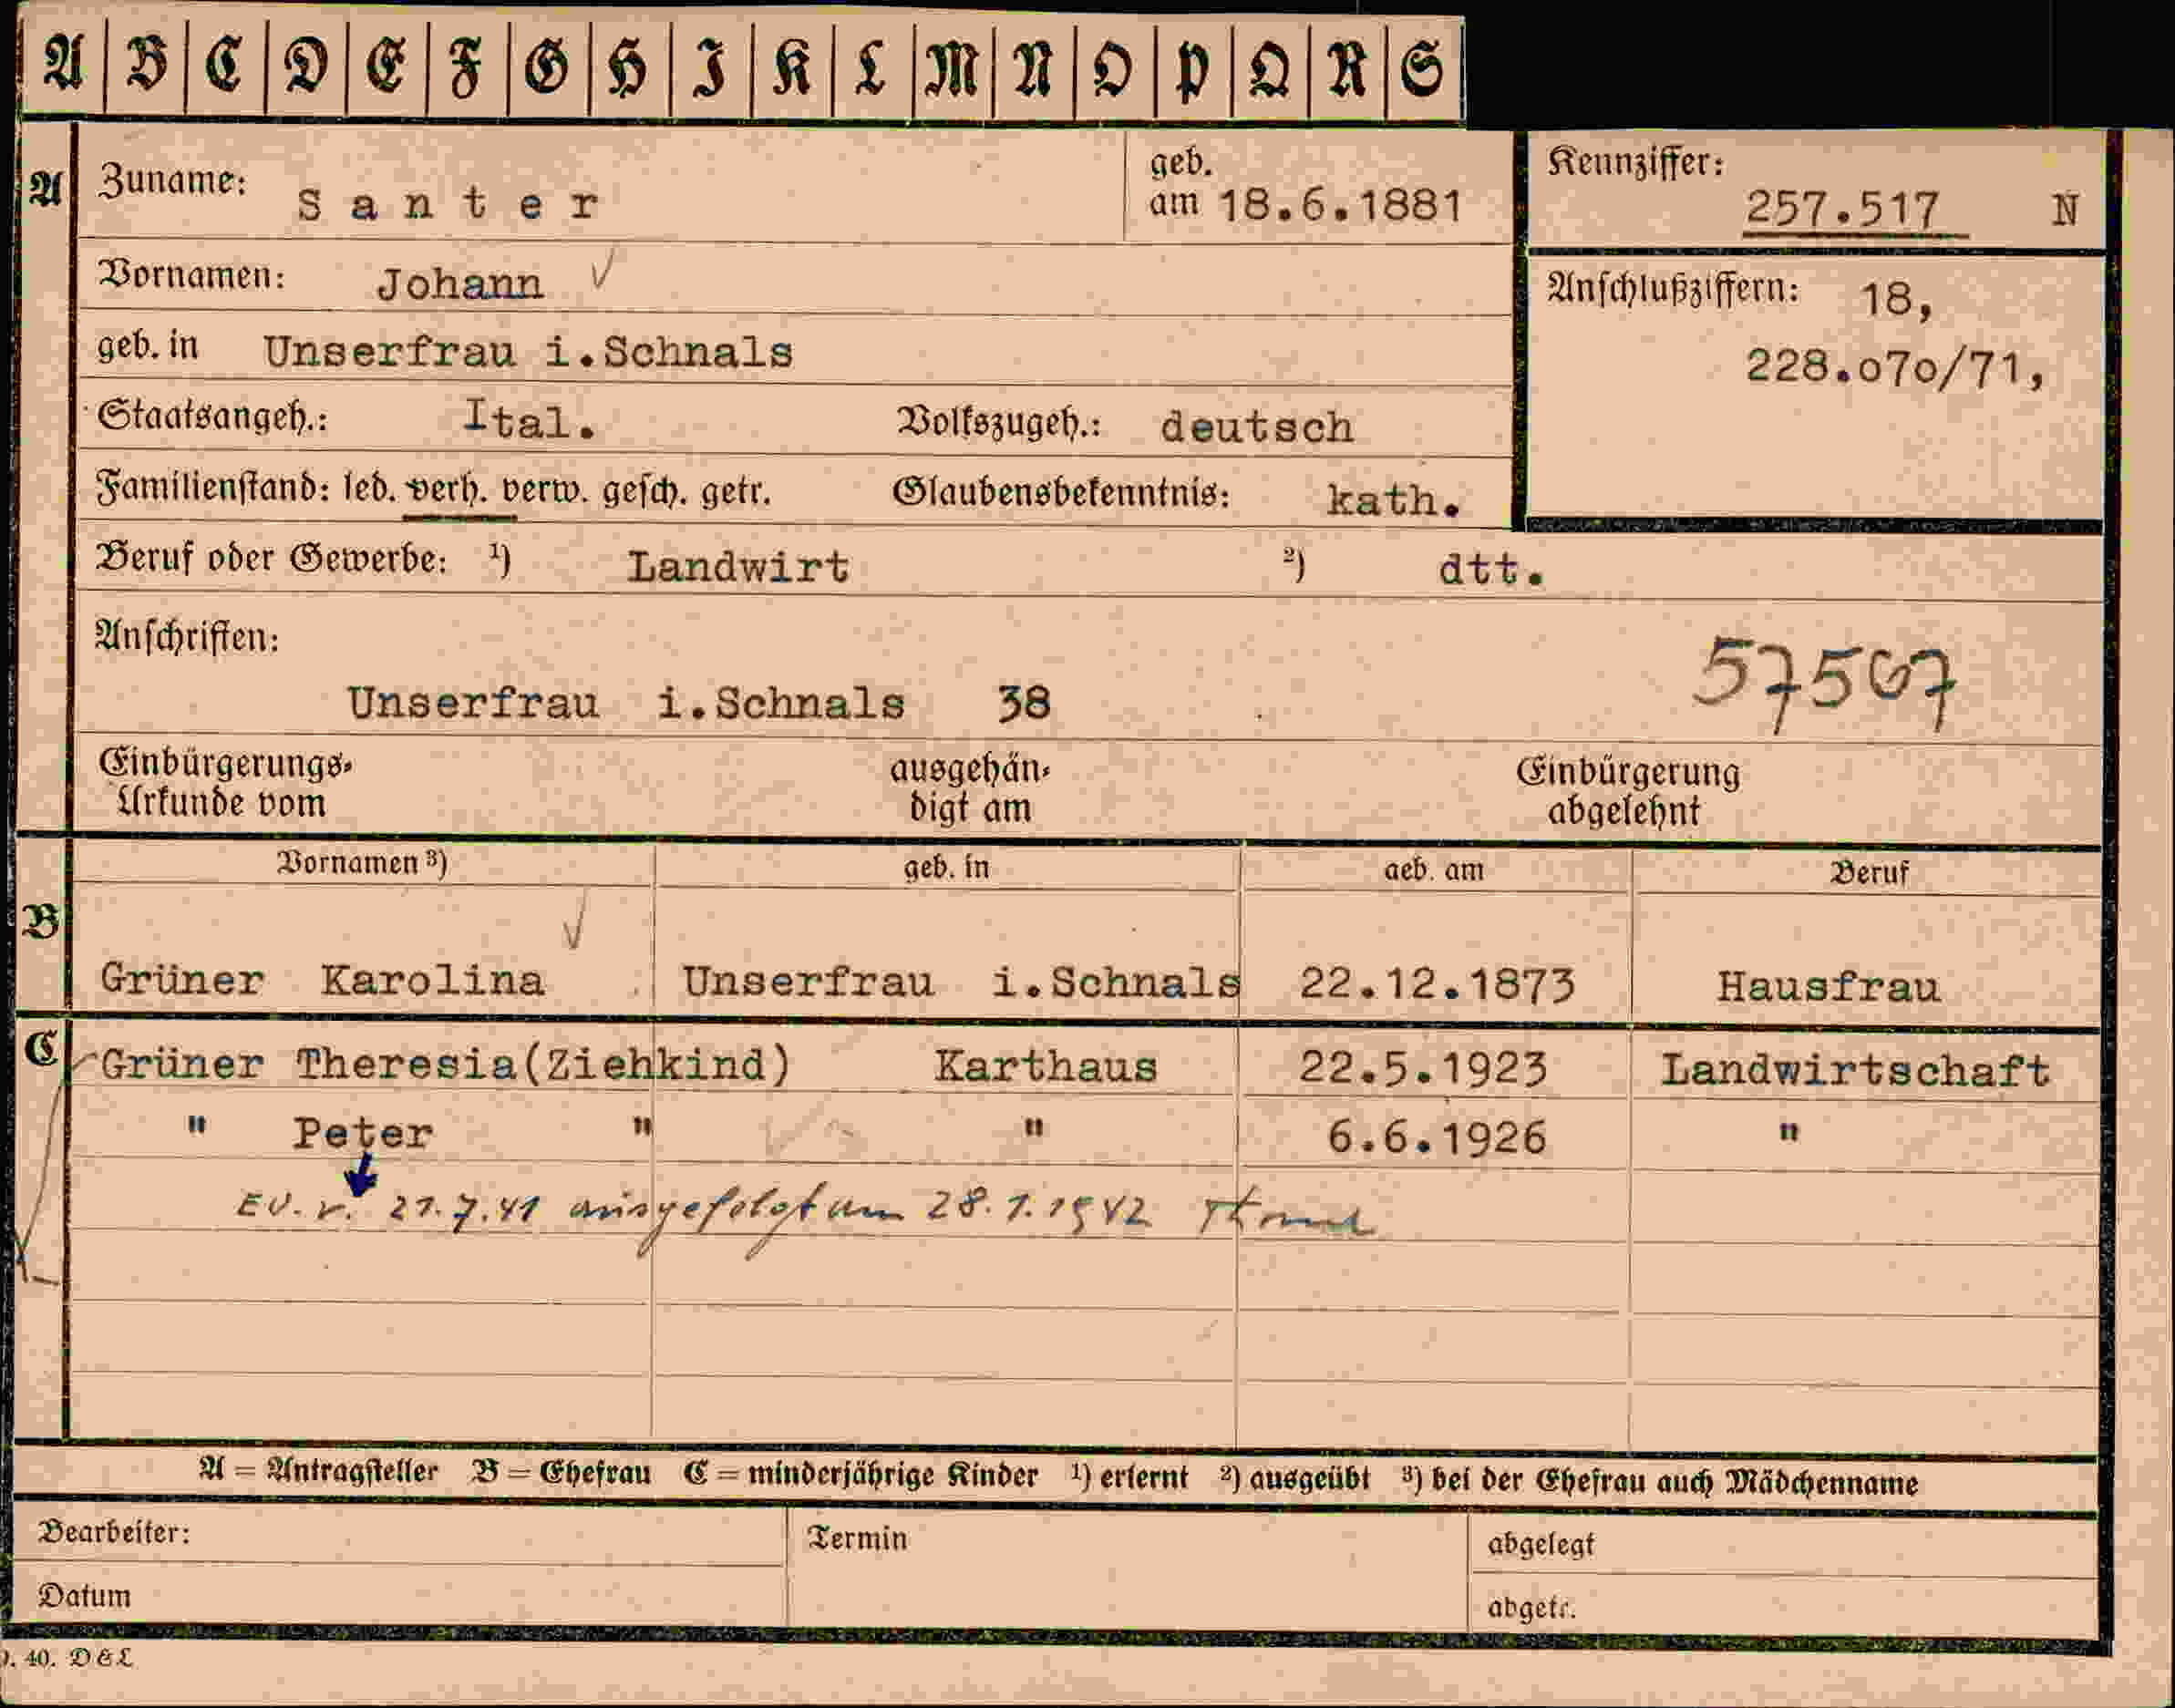 A B C D E F G H I K L M N O P Q R S
A Zuname: Santer geb. am 18.6.1881 Kennziffer: 257.517 N
Vornamen: Johann Anschlußziffern: 18,
geb. in Unserfrau i.Schnals 228.070/71,
Staatsangeh.: Ital. Volkszugeh.: deutsch
Familienstand: led. verh. verw. gesch. getr. Glaubensbekenntnis: kath.
Beruf oder Gewerbe: ¹) Landwirt ²) dtt.
Anschriften:
57567
Unserfrau i.Schnals 38
Einbürgerungs-Urkunde vom ausgehän-digt am Einbürgerung abgelehnt
Vornamen ³) geb. in geb. am Beruf
B
Grüner Karolina Unserfrau i.Schnals 22.12.1873 Hausfrau
C Grüner Theresia(Ziehkind) Karthaus 22.5.1923 Landwirtschaft
" Peter " " 6.6.1926 "
EU. v. 21.7.41 ausgefolgt am 28.1.1942
A = Antragsteller B = Ehefrau C = minderjährige Kinder ¹) erlernt ²) ausgeübt ³) bei der Ehefrau auch Mädchenname
Bearbeiter: Termin abgelegt
Datum abgetr.
40. D & L